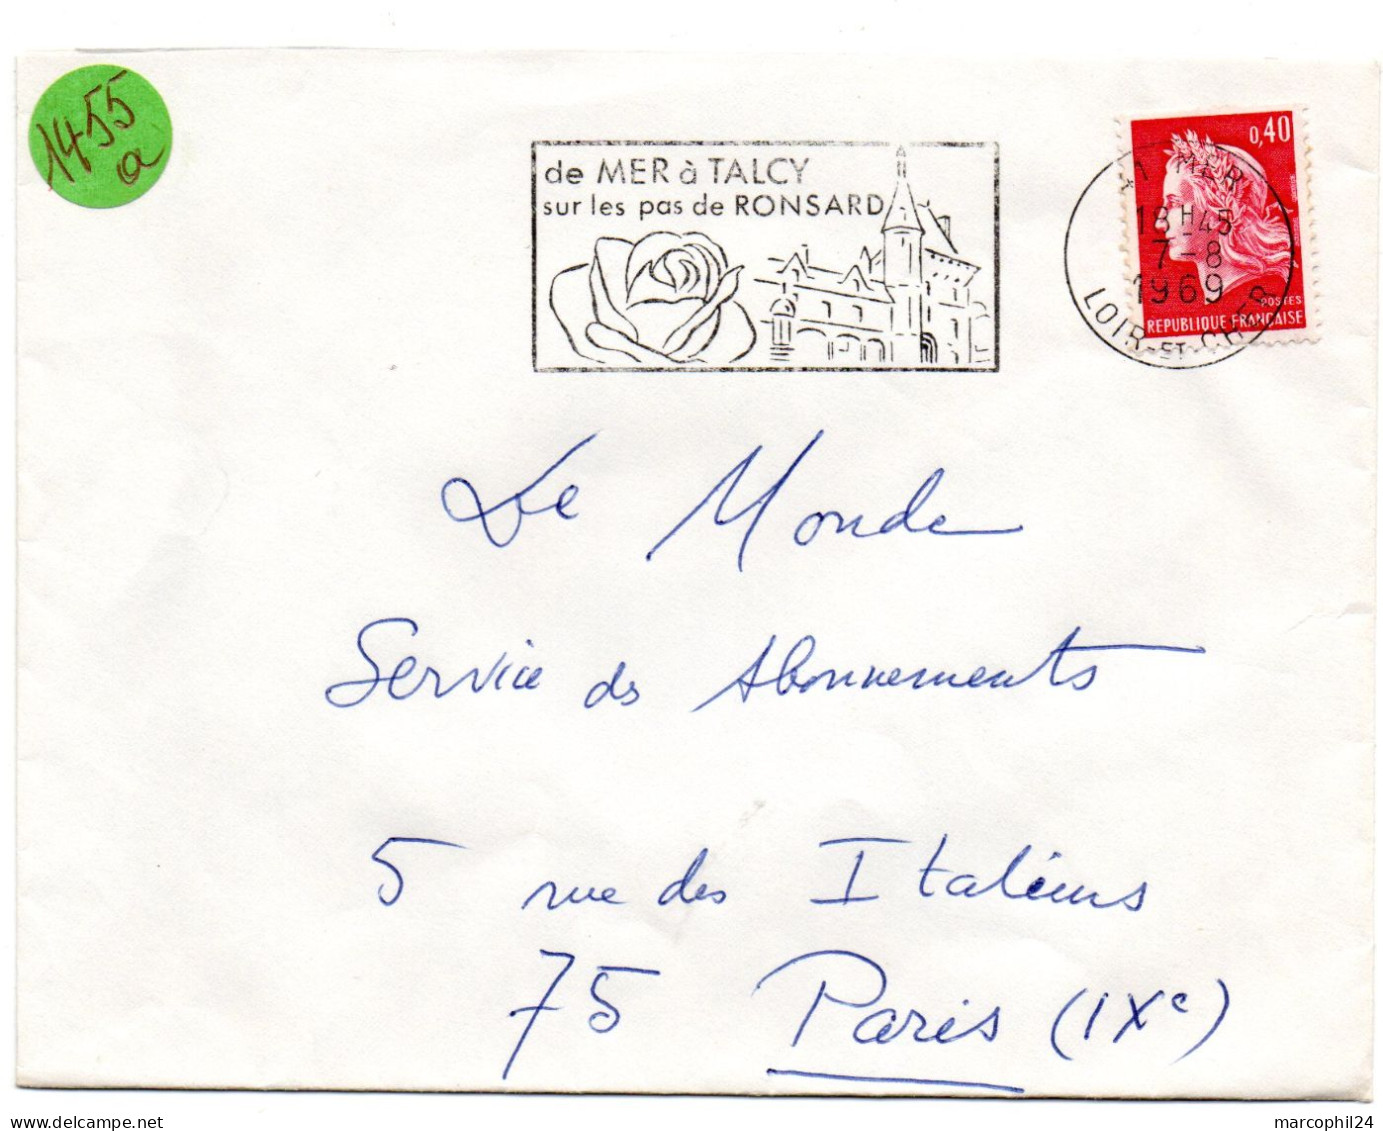 1455
a
de MER à TALCY
sur les pas de RONSARD
0,40
41 MER
18H45
7-8
1969
LOIR-ET-CHER
POSTES
REPUBLIQUE FRANÇAISE
Le Monde
Service des Abonnements
5 rue des Italiens
75 Paris (IXe)
marcophil24